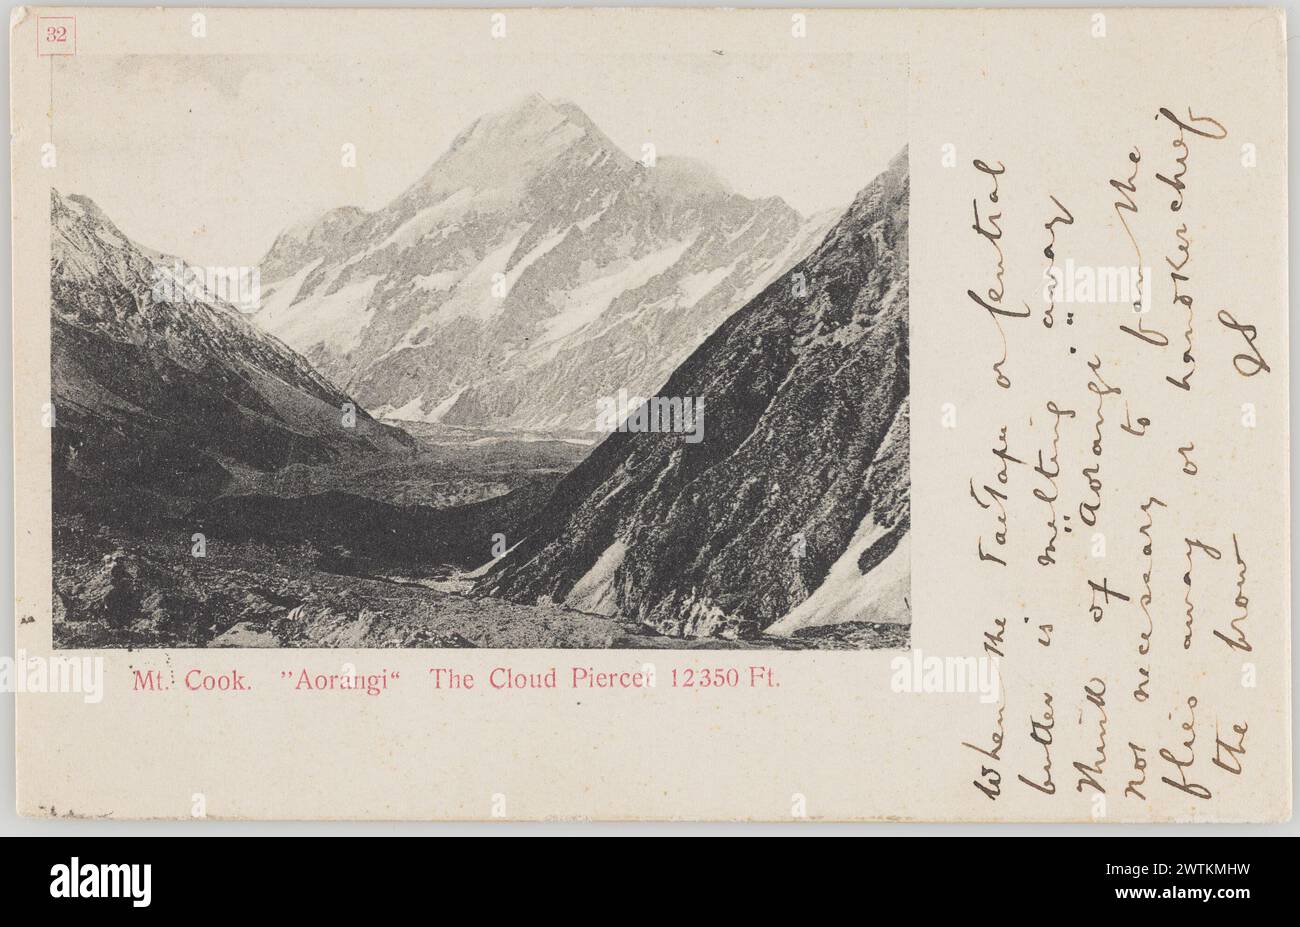 32
Mt. Cook. "Aorangi" The Cloud Piercer 12350 Ft.
When the Taitapu or Central
butter is melting away
think of "Aorangi".
not necessary to fan the
flies away or handkerchief
the brow JS
alamy
Image ID: 2WTKMHW
www.alamy.com